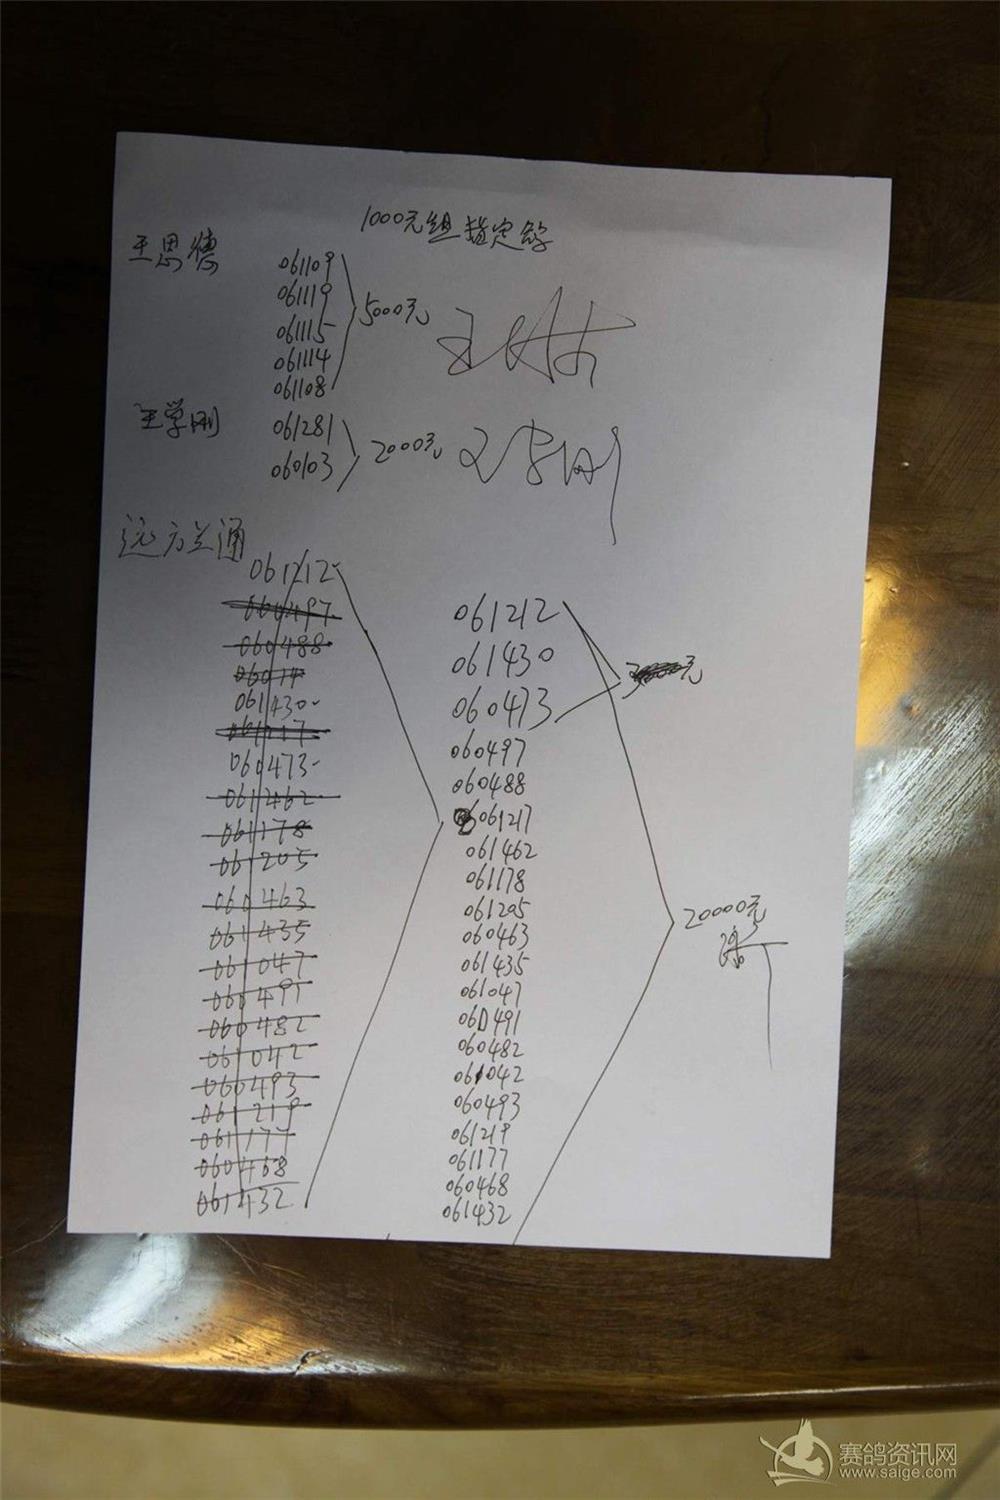 1000元组指定鸽
王思德
061109
061119
061115
061114
061108
5000元
王学刚
061281
060103
2000元
王学刚
远方兰通
061212
060497
060488
06014
061430
061217
060473
061462
061178
061205
060463
061435
061047
060491
060482
061042
060493
061219
061177
060468
061432
061212
061430
060473
元
060497
060488
061217
061462
061178
061205
060463
061435
061047
060491
060482
061042
060493
061219
061177
060468
061432
20000元
赛鸽资讯网
www.saige.com